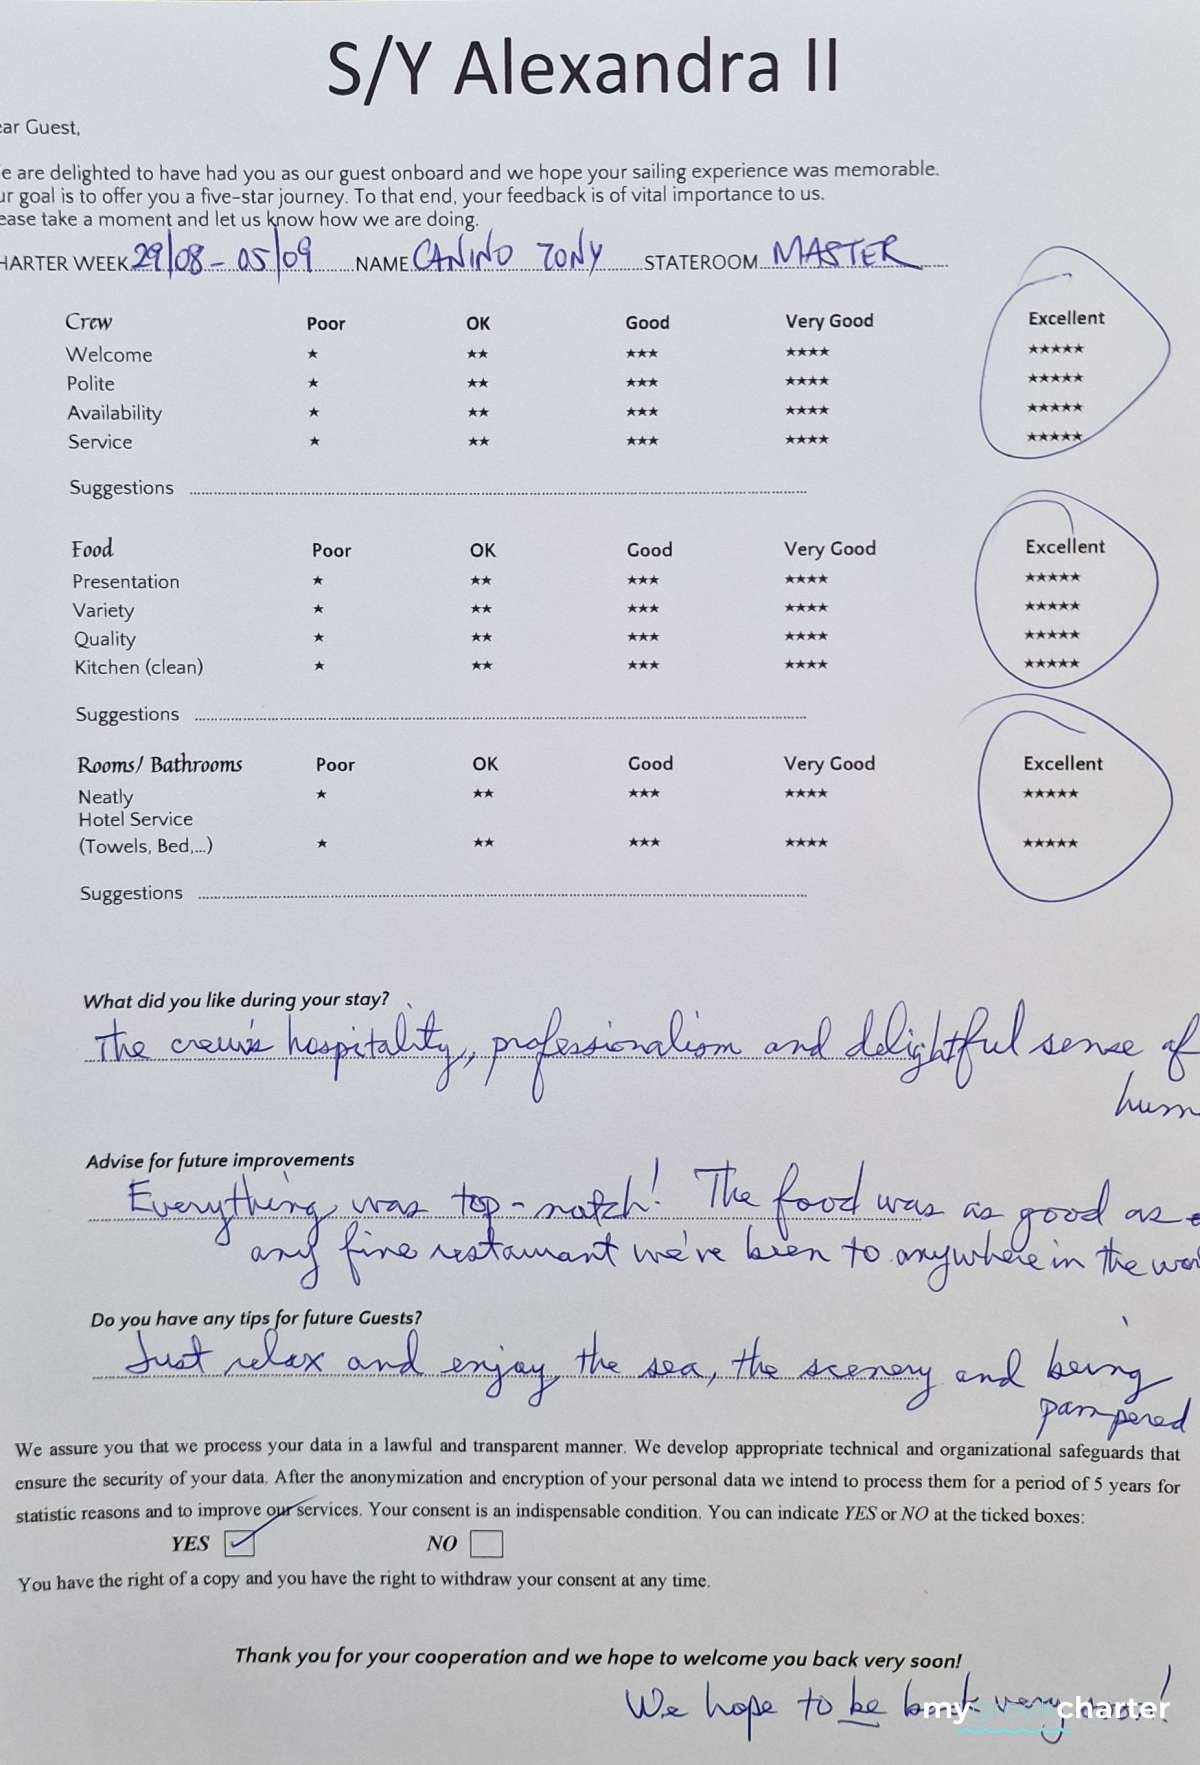 S/Y Alexandra II
ear Guest,
e are delighted to have had you as our guest onboard and we hope your sailing experience was memorable.
ur goal is to offer you a five-star journey. To that end, your feedback is of vital importance to us.
ease take a moment and let us know how we are doing.
HARTER WEEK 29/08 - 05/09 NAME CANINO TONY STATEROOM MASTER
Crew Poor OK Good Very Good Excellent
Welcome ★ ★★ ★★★ ★★★★ ★★★★★
Polite ★ ★★ ★★★ ★★★★ ★★★★★
Availability ★ ★★ ★★★ ★★★★ ★★★★★
Service ★ ★★ ★★★ ★★★★ ★★★★★
Suggestions
Food Poor OK Good Very Good Excellent
Presentation ★ ★★ ★★★ ★★★★ ★★★★★
Variety ★ ★★ ★★★ ★★★★ ★★★★★
Quality ★ ★★ ★★★ ★★★★ ★★★★★
Kitchen (clean) ★ ★★ ★★★ ★★★★ ★★★★★
Suggestions
Rooms/ Bathrooms Poor OK Good Very Good Excellent
Neatly ★ ★★ ★★★ ★★★★ ★★★★★
Hotel Service
(Towels, Bed,...) ★ ★★ ★★★ ★★★★ ★★★★★
Suggestions
What did you like during your stay?
The crew's hospitality, professionalism and delightful sense of
hum
Advise for future improvements
Everything was top-notch! The food was as good as
any fine restaurant we've been to anywhere in the wor
Do you have any tips for future Guests?
Just relax and enjoy the sea, the scenery and being
pampered
We assure you that we process your data in a lawful and transparent manner. We develop appropriate technical and organizational safeguards that
ensure the security of your data. After the anonymization and encryption of your personal data we intend to process them for a period of 5 years for
statistic reasons and to improve our services. Your consent is an indispensable condition. You can indicate YES or NO at the ticked boxes:
YES NO
You have the right of a copy and you have the right to withdraw your consent at any time.
Thank you for your cooperation and we hope to welcome you back very soon!
We hope to be back very soon!
mygreekcharter